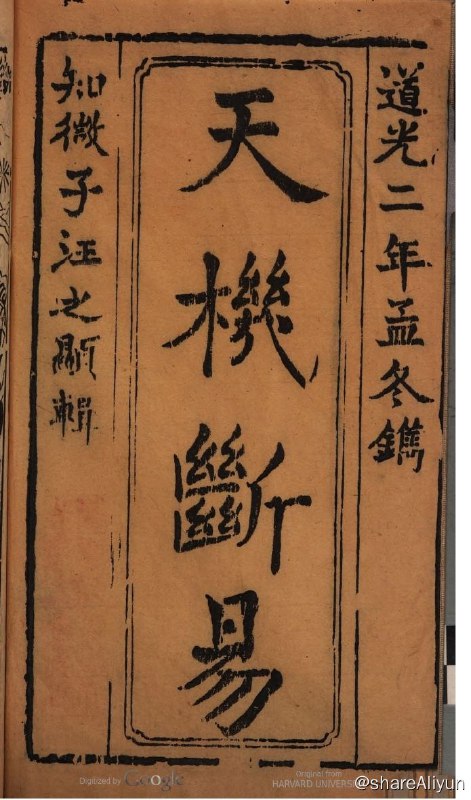 道光二年孟冬鐫
天機斷易
知微子汪之顯輯
Digitized by Google
Original from
HARVARD UNIVERSITY
@shareAliyun